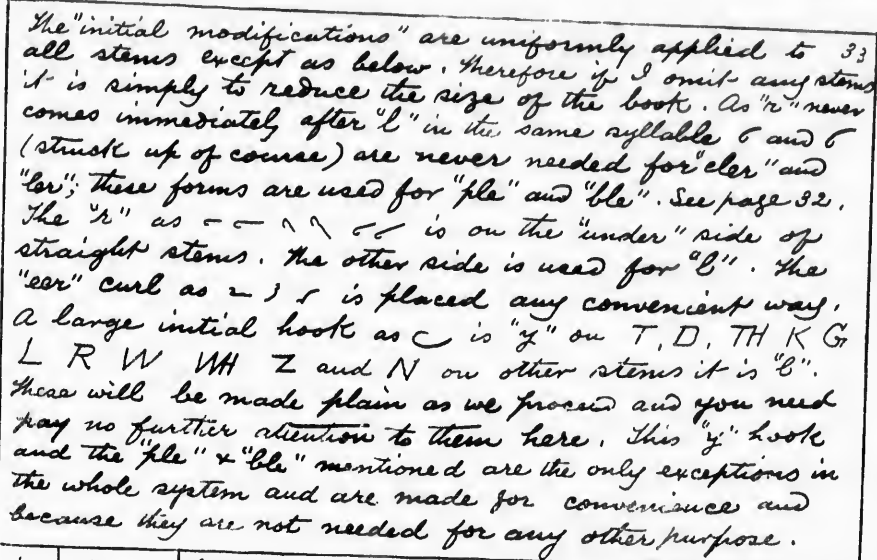 The "initial modifications" are uniformly applied to 33
all stems except as below. Therefore if I omit any stems
it is simply to reduce the size of the book. As "r" never
comes immediately after "l" in the same syllable and
(struck up of course) are never needed for "cler" and
"ler"; these forms are used for "ple" and "ble". See page 32.
The "r" as is on the "under" side of
straight stems. The other side is used for "l". The
"eer" curl as is placed any convenient way.
A large initial hook as is "y" on T, D, TH K G
L R W WH Z and N on other stems it is "l".
These will be made plain as we proceed and you need
pay no further attention to them here. This "y" hook
and the "ple" & "ble" mentioned are the only exceptions in
the whole system and are made for convenience and
because they are not needed for any other purpose.